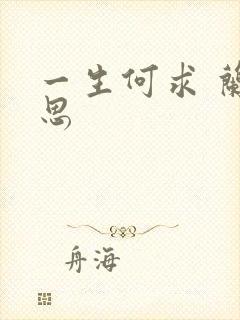 一生何求 蘭
思
舟海